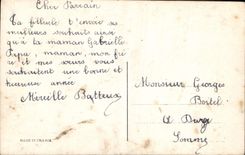 Cher Parrain
Ta fillule t'envoie ses
meilleurs souhaits ainsi
qu'à ta maman Gabrielle
Pepa, maman, mon frè
re et mes sœurs vous
souhaitent une bonne et
heureuse année
Mireille Batteux
Monsieur Georges
Bortel
à Dury
Somme
MADE IN FRANCE